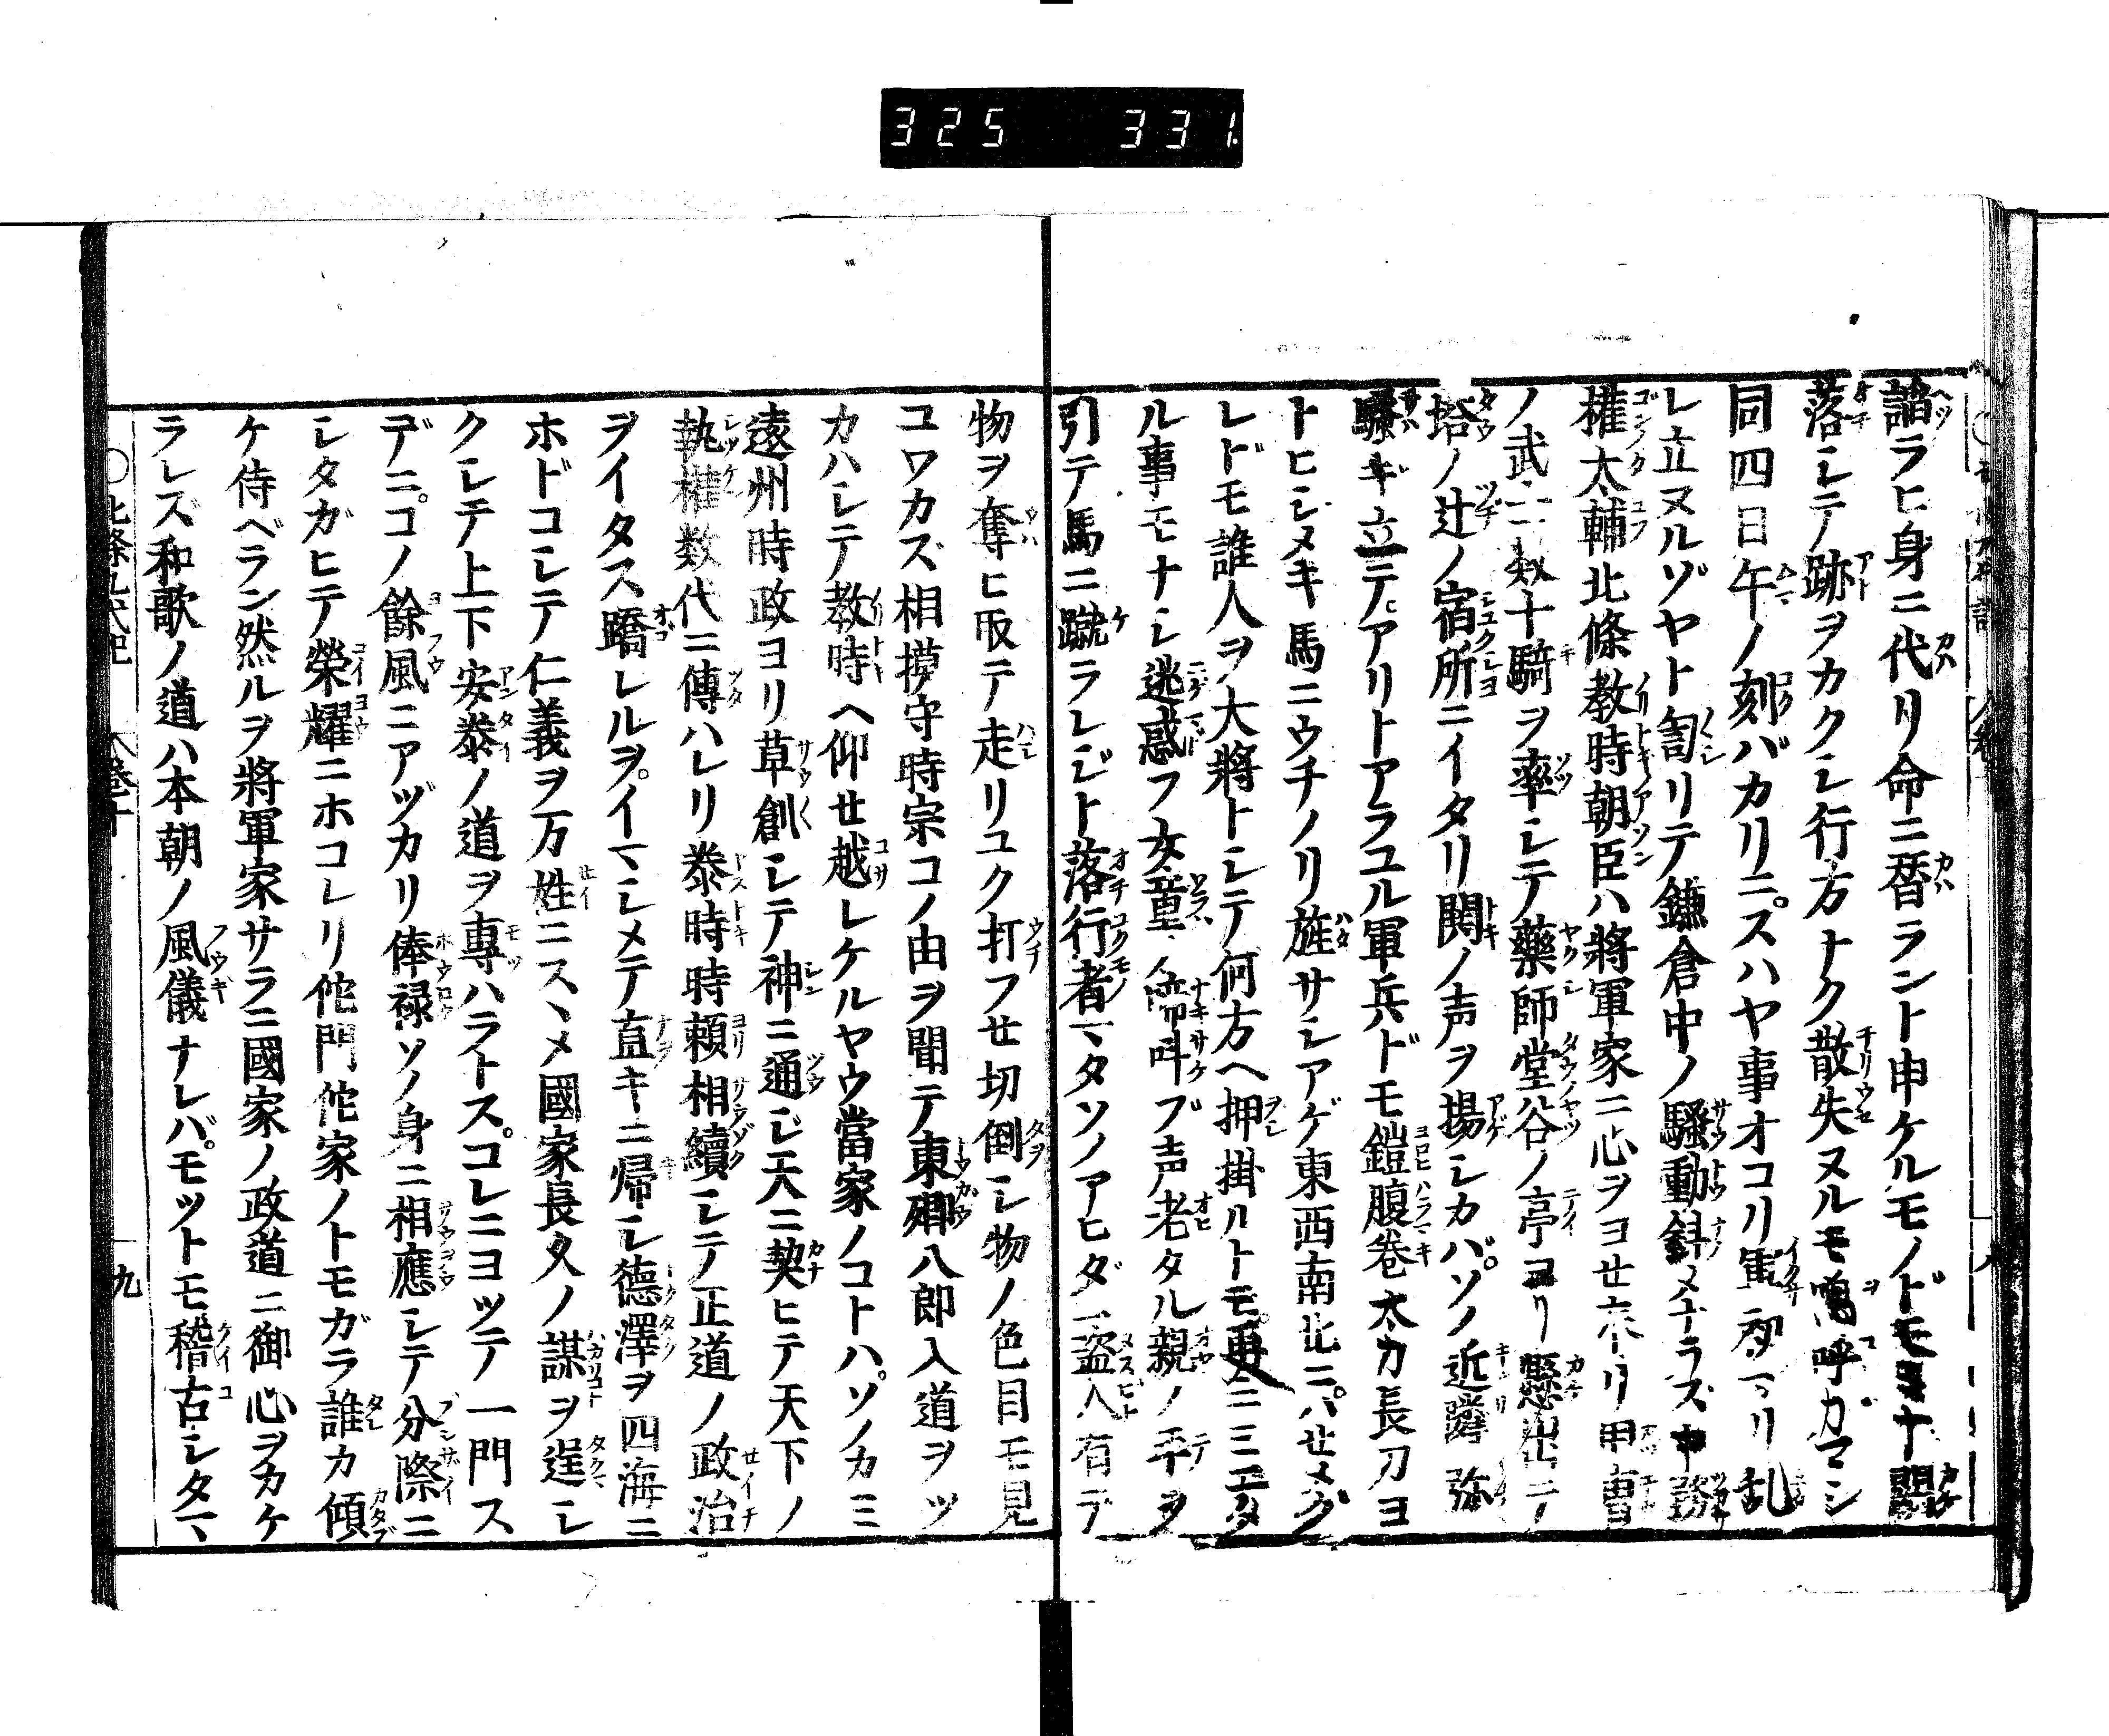 325 331.
諂ラヒ身ニ代リ命ニ替ラント申ケルモノドモミナ闘
落シテ跡ヲカクシ行方ナク散失ヌルモ嗚呼ガマシ
同四日午ノ刻バカリニスハヤ事オコリ軍初マリ乱
レ立ヌルゾヤト匐リテ鎌倉中ノ騒動斜メナラズ中務
權太輔北條教時朝臣ハ將軍家ニ心ヲヨせ奉リ甲曹
ノ武士数十騎ヲ率シテ藥師堂谷ノ亭ヨリ懸出テ
塔ノ辻ノ宿所ニイタリ閧ノ声ヲ揚シカバソノ近隣弥
騒ギ立テアリトアラユル軍兵ドモ鎧腹巻太刀長刀ヨ
トヒシメキ馬ニウチノリ旌サシアゲ東西南北ニハせメグ
レドモ誰人ヲ大將トシテ何方ヘ押掛ルトモ更ニミエタ
ル事モナシ逃惑フ女童ノ啼叫ブ声老タル親ノ手ヲ
引テ馬ニ蹴ラレジト落行者マタソノアヒダニ盗人有テ
物ヲ奪ヒ取テ走リユク打フせ切倒シ物ノ色目モ見
ユワカズ相摸守時宗コノ由ヲ聞テ東郷八郎入道ヲツ
カハシテ教時ヘ仰せ越シケルヤウ當家ノコトハソノカミ
遠州時政ヨリ草創シテ神ニ通ジ天ニ契ヒテ天下ノ
執權数代ニ傳ハレリ泰時時頼相續シテ正道ノ政治
ヲイタス驕レルヲイマシメテ直キニ帰シ德澤ヲ四海ニ
ホドコシテ仁義ヲ万姓ニスヽメ國家長久ノ謀ヲ逞シ
クシテ上下安泰ノ道ヲ專ハラトスコレニヨッテ一門ス
デニコノ餘風ニアヅカリ俸禄ソノ身ニ相應シテ分際ニ
シタガヒテ榮耀ニホコレリ佗門佗家ノトモガラ誰カ傾
ケ侍ベラン然ルヲ將軍家サラニ國家ノ政道ニ御心ヲカケ
ラレズ和歌ノ道ハ本朝ノ風儀ナレバモットモ稽古シタマ
○北條九代記 巻十 九